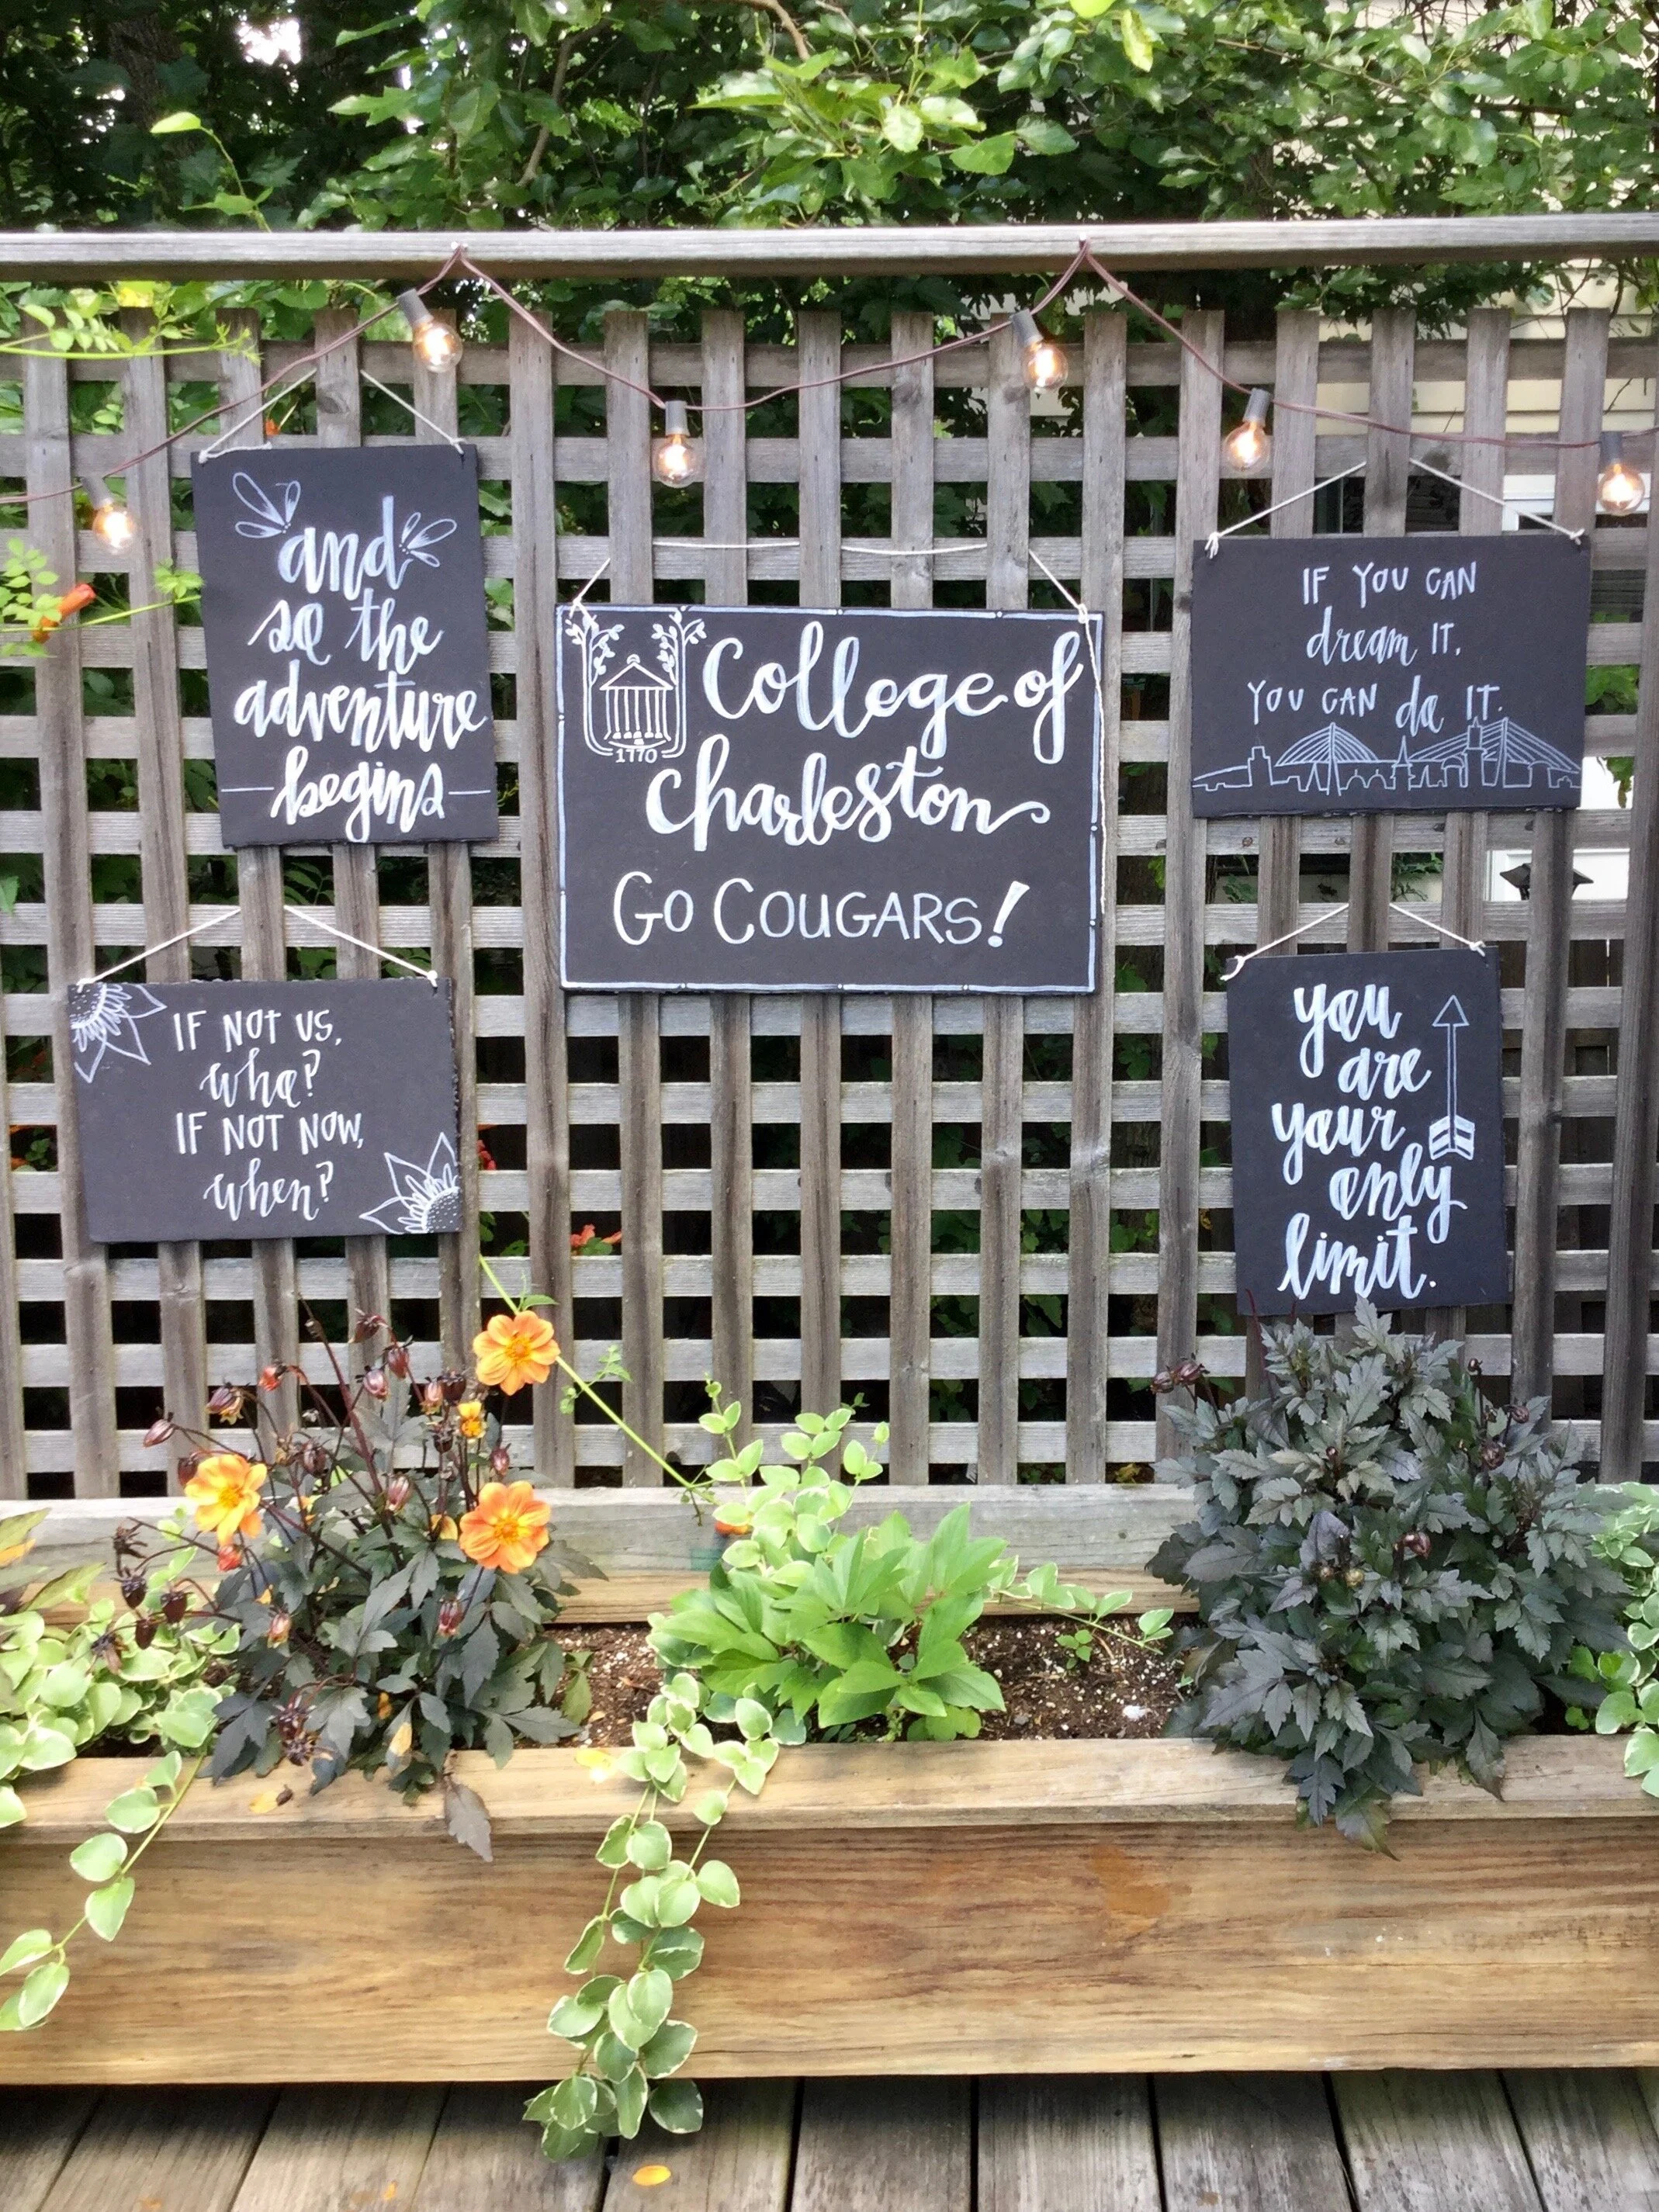 and
so the
adventure
begins
1770
College of
Charleston
Go Cougars!
IF YOU CAN
dream IT,
YOU CAN do IT.
IF NOT US,
who?
IF NOT NOW,
when?
you
are
your
only
limit.